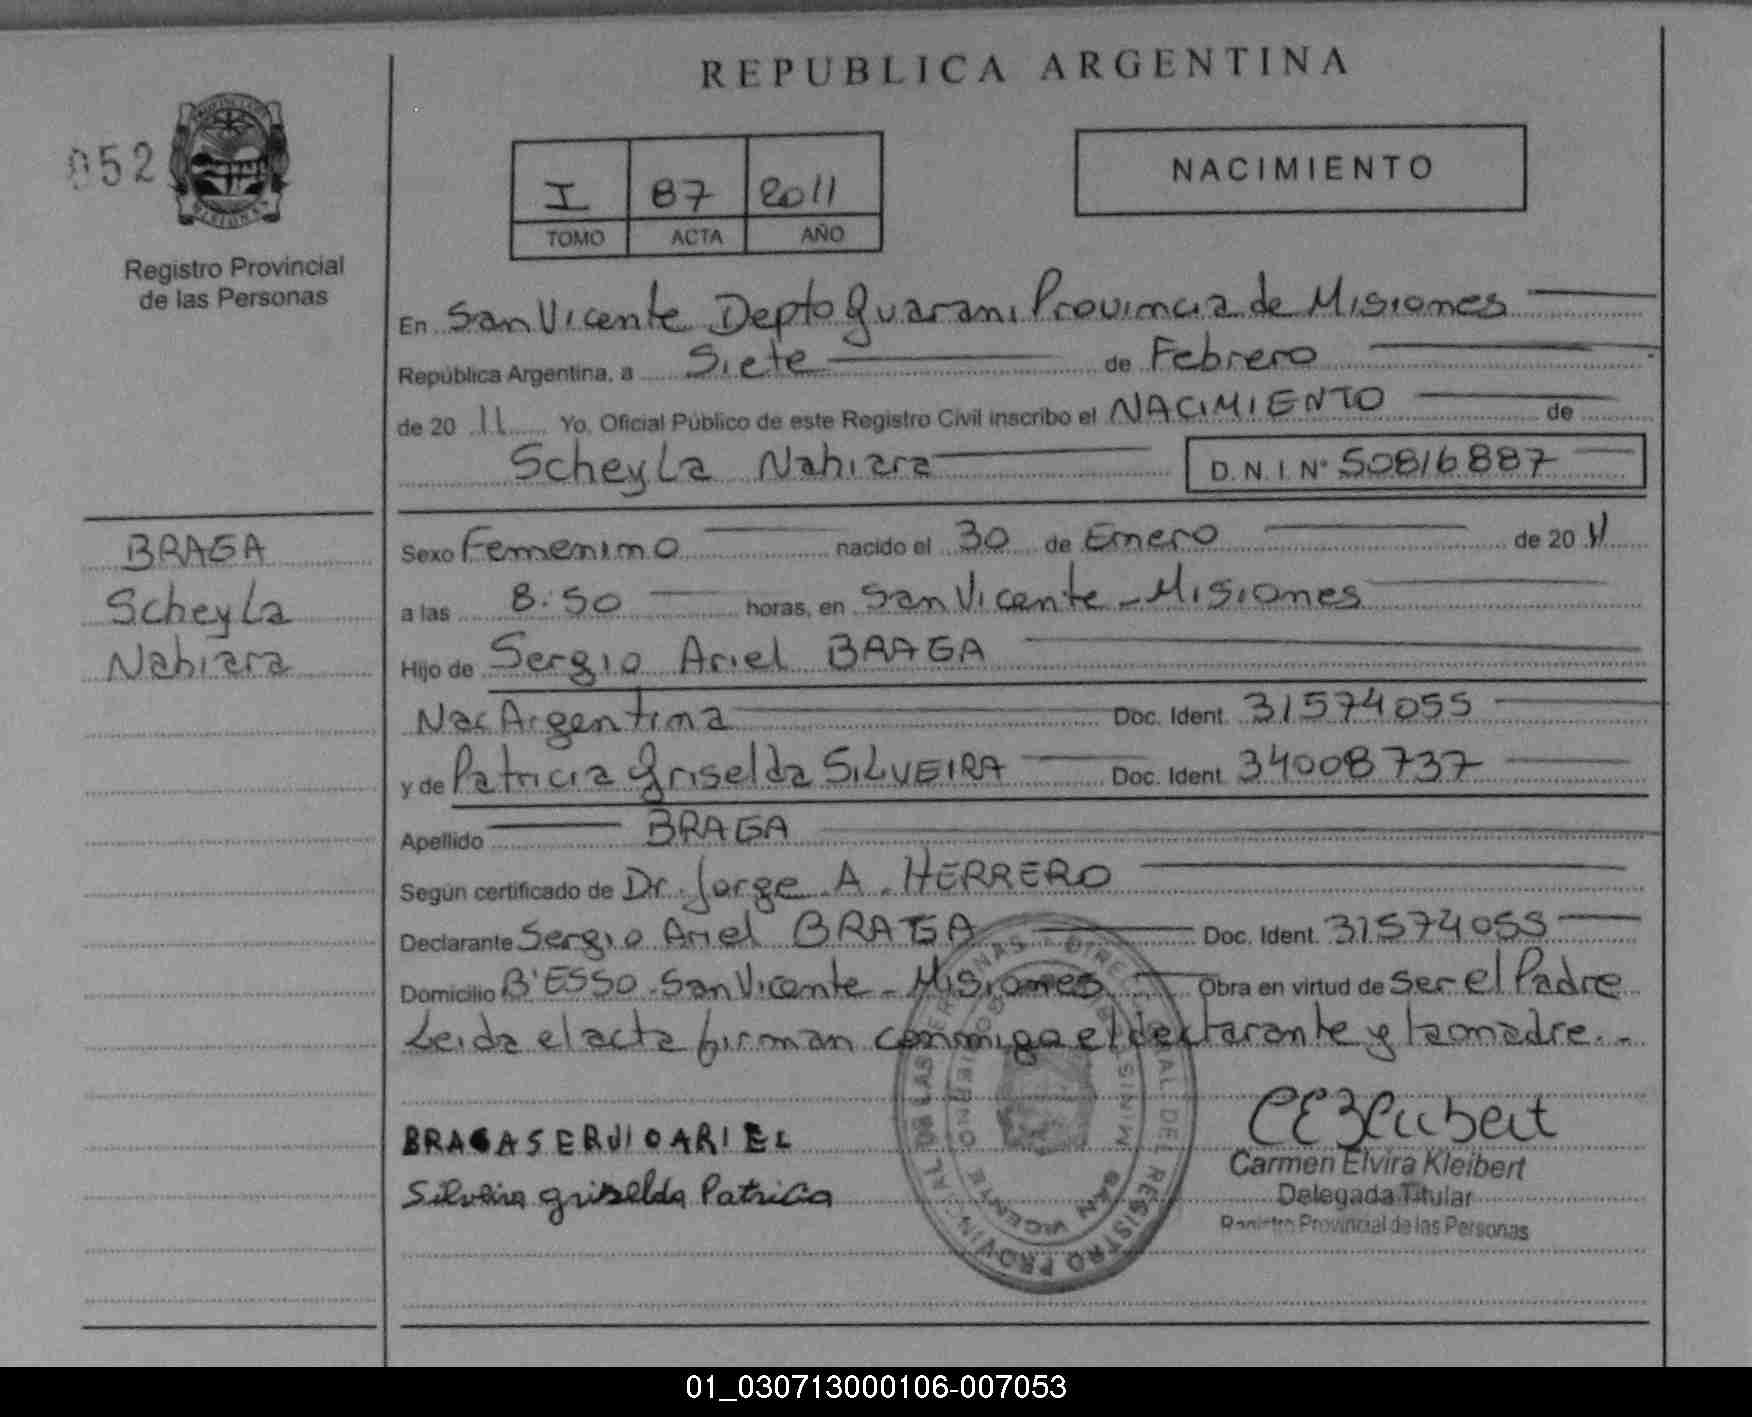 REPUBLICA ARGENTINA
052
I 87 2011
TOMO ACTA AÑO
NACIMIENTO
Registro Provincial
de las Personas
En San Vicente Depto Guarani Provincia de Misiones
República Argentina, a Siete de Febrero
de 20 11 Yo, Oficial Público de este Registro Civil inscribo el NACIMIENTO de
Scheyla Nahiara D.N.I. Nº 50816887
BRAGA
Scheyla
Nahiara
Sexo Femenino nacido el 30 de Enero de 20 11
a las 8:50 horas, en San Vicente - Misiones
Hijo de Sergio Ariel BRAGA
Nac Argentina Doc. Ident. 31574055
y de Patricia Griselda SILVEIRA Doc. Ident. 34008737
Apellido BRAGA
Según certificado de Dr. Jorge A. HERRERO
Declarante Sergio Ariel BRAGA Doc. Ident. 31574055
Domicilio Bº ESSO - San Vicente - Misiones Obra en virtud de ser el Padre
Leida el acta firman conmigo el declarante y la madre.-
BRAGA SERJIO ARIEL
Silveira griselda Patricia
Carmen Elvira Kleibert
Delegada Titular
Registro Provincial de las Personas
SAN VICENTE
01_030713000106-007053